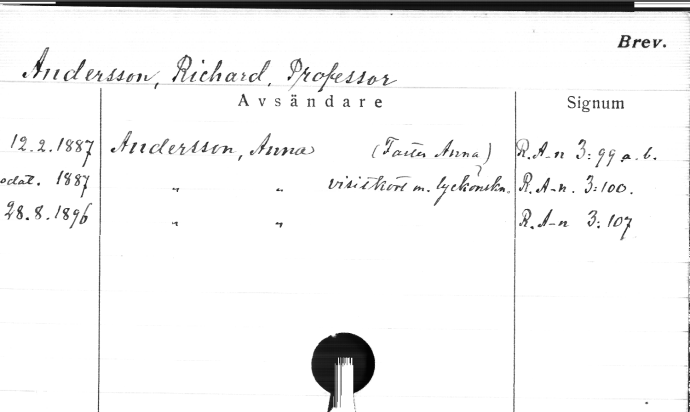 Brev.
Andersson, Richard, Professor
Avsändare Signum
12.2.1887 Andersson, Anna (Faster Anna) R.A-n 3:99 a.b.
odat. 1887 " " visitkort m. lyckönskn. R.A-n. 3:100.
28.8.1896 " " R.A-n 3:107